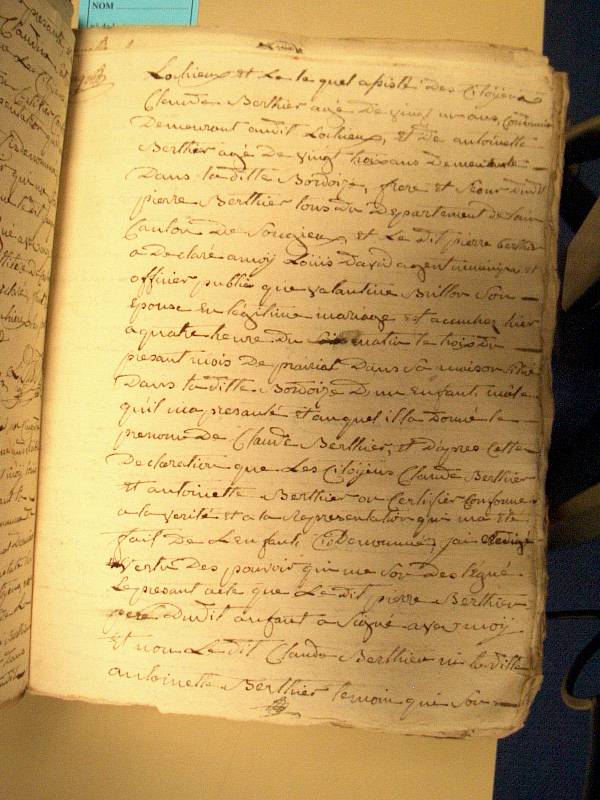 NOM
Lochieux et Le le quel assisté Des Citoyens
Claude Berthier agé De vingt un ans,
Demeurant audit Lochieux, et De antoinette
Berthier agé De vingt trois ans Demeurante
Dans la ditte Bordoize, frere et Sœur dudit
pierre Berthier tous Du Departement de Lain
Canton De Songieux, et Le dit pierre Berthier
a Declaré a moy Louis David agent municipal et
officier publiq que valantine Billon Son
epouse En légitime mariage est acouchez hier
a quatre heure Du matin le trois Du
presant mois De prairial Dans Sa maison Situé
Dans la ditte Bordoize D'un Enfant mâle
qu'il ma presanté Et auquel il la Donné le
prenom De Claude Berthier, et D'apres Cette
Declaration que Les Citoyens Claude Berthier
Et antoinette Berthier on Certifier Conforme
a la verité et a la Representation qui ma été
fait De L'enfant Denommé, jai Redigé
vertu Des pouvoir qui me Son Des legué
Le presant acte que Le Dit pierre Berthier
pere Dudit anfant a Signe avec moy
Et non Le dit Claude Berthier ni la ditte
antoinette Berthier temoin qui Son